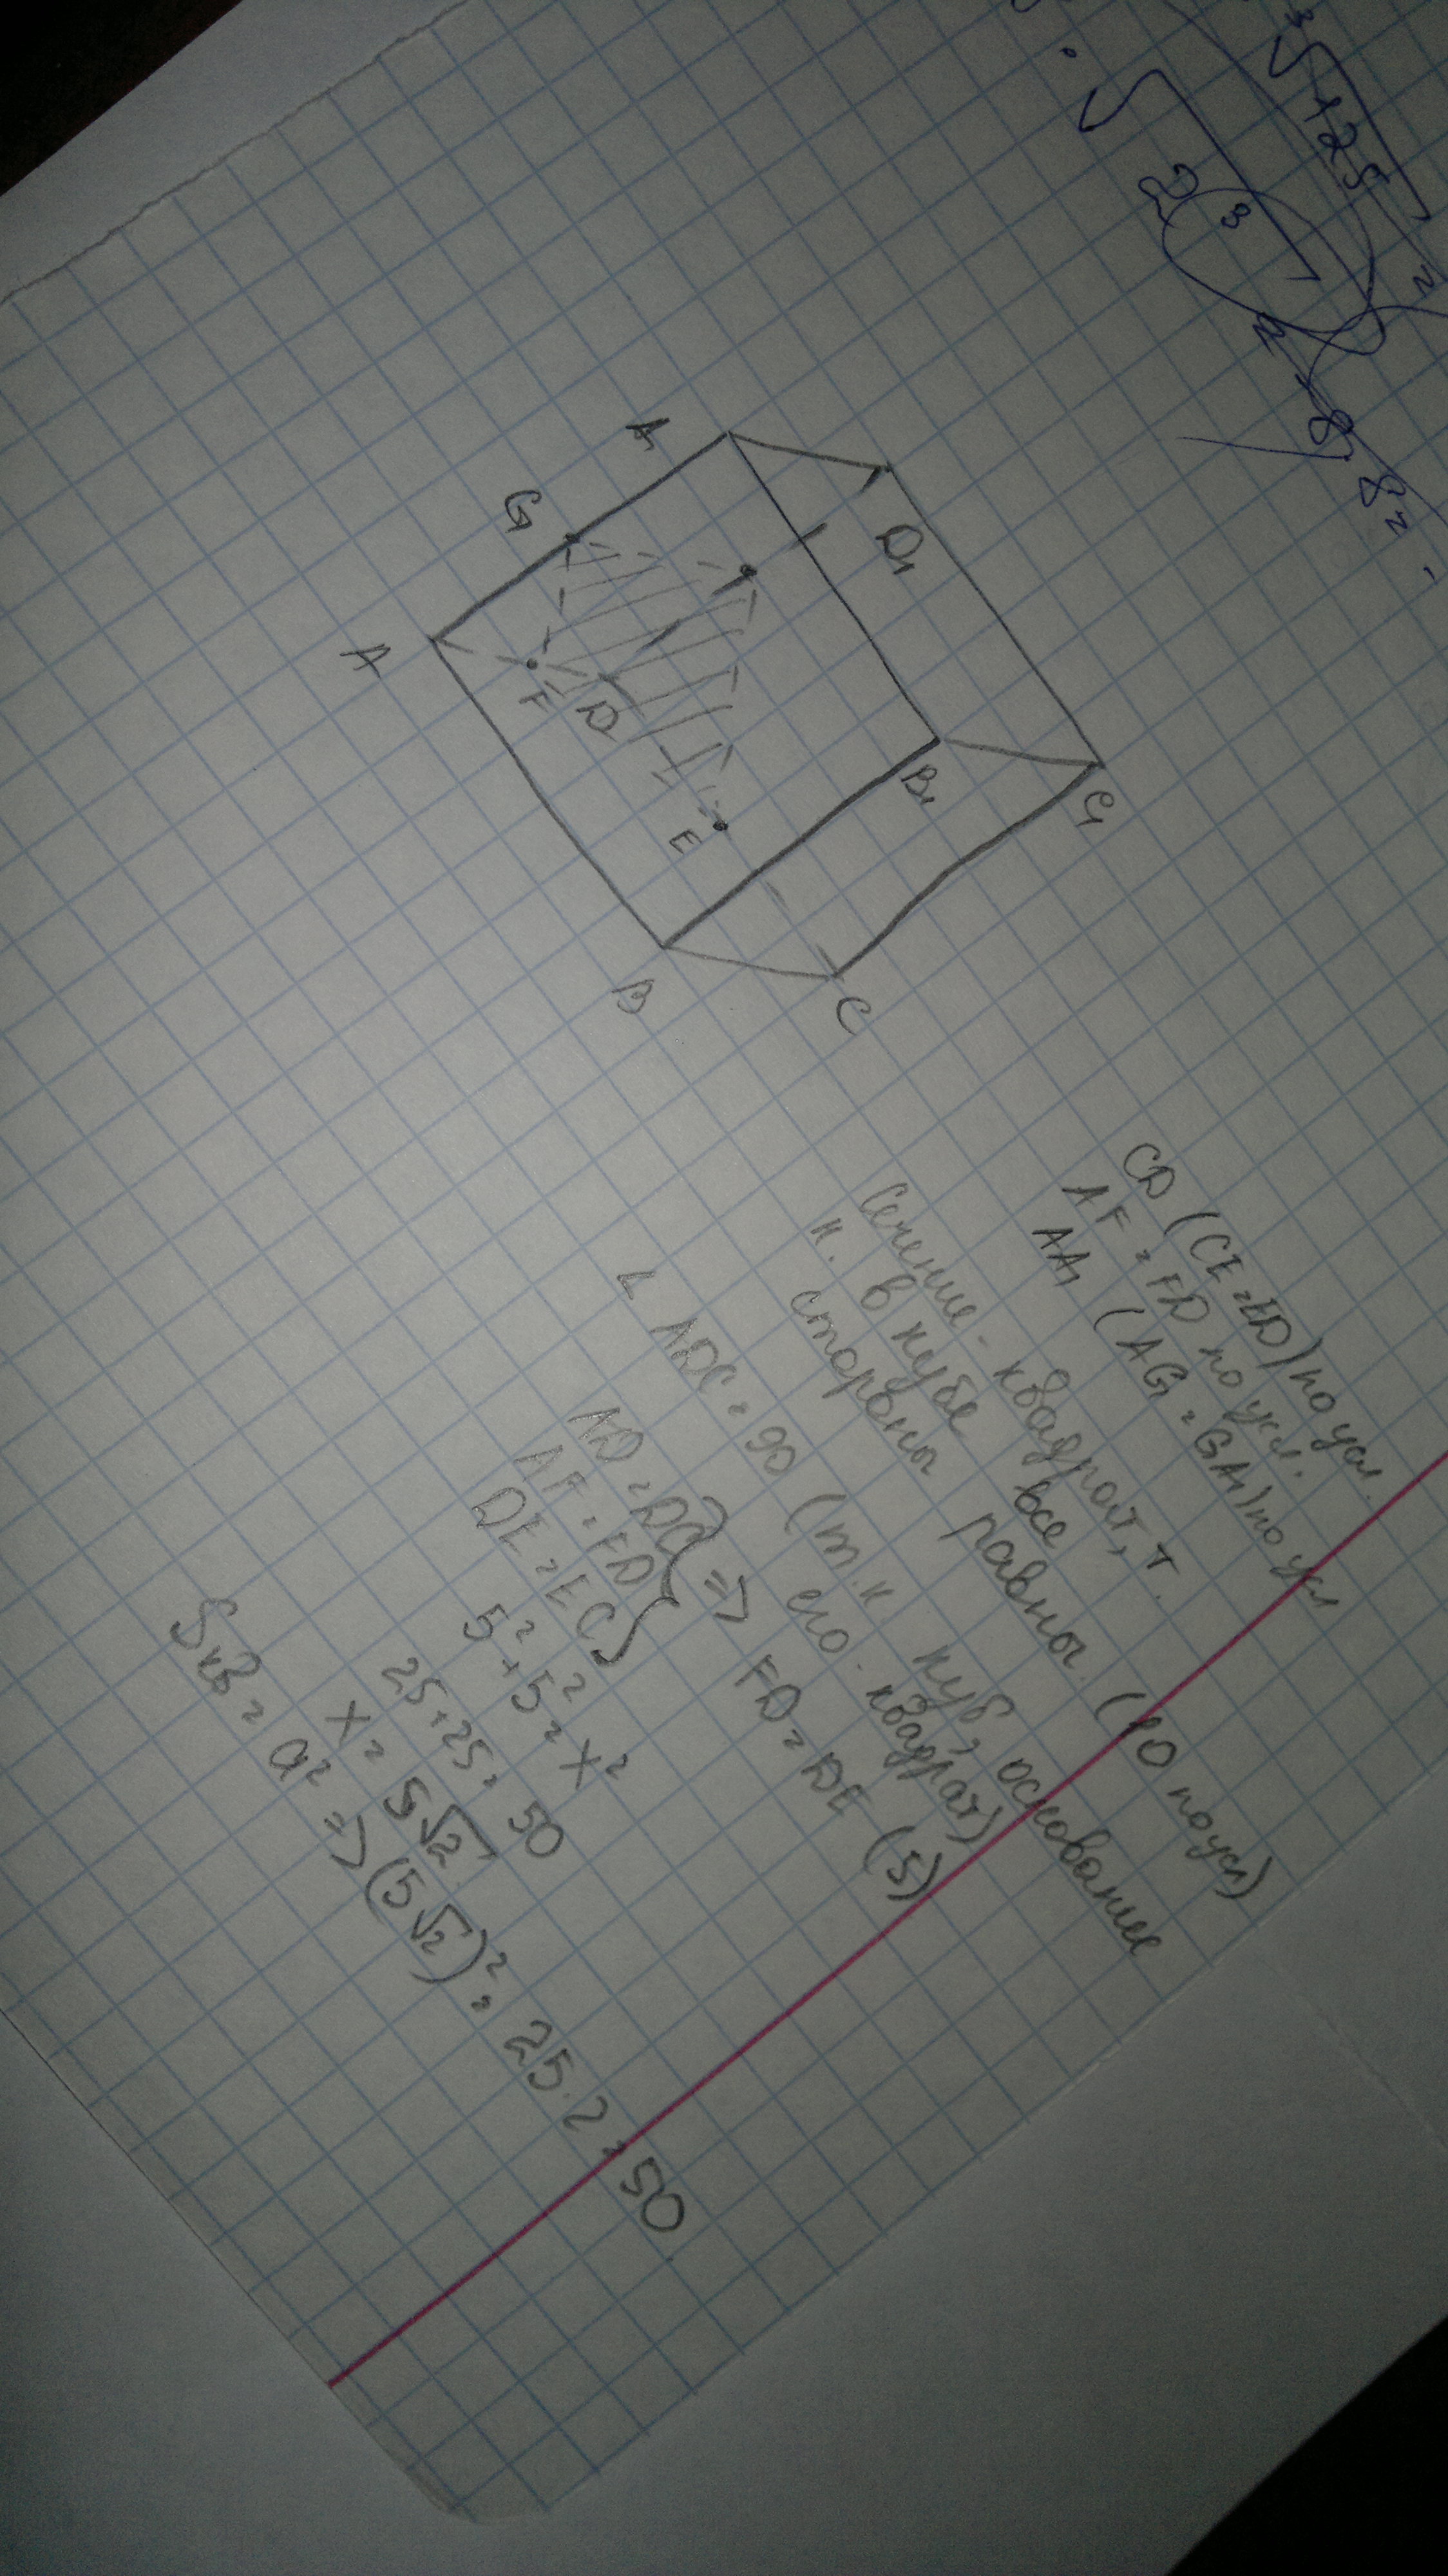 ³√125
2
2
3
2
8
8²
A₁
D₁
G
A
F
D
B₁
C₁
E
B
C
CD (CE=ED) по усл.
AF = FD по усл.
AA₁ (AG = GA₁) по усл
Сечение - квадрат, т.
к. в кубе все
стороны равны. (10 по усл)
∠ ADC = 90 (т.к. куб, основание
его - квадрат)
AD = DC
AF = FD
DE = EC
} => FD = DE (5)
5² + 5² = x²
25 + 25 = 50
x = 5√2
Sкв = a² => (5√2)² = 25·2 = 50